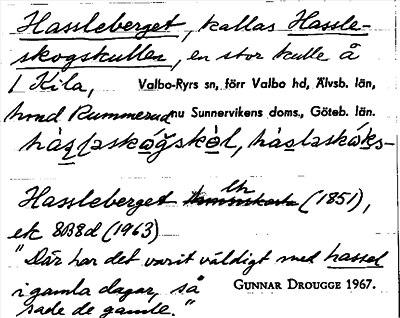 Hassleberget, kallas Hassle-
skogskullen, en stor kulle å
1 Kila, Valbo-Ryrs sn, förr Valbo hd, Älvsb. län,
hmd Rummerud nu Sunnervikens doms., Göteb. län.
Hassleberget lh (1851),
ek 8B8d (1963)
"Där har det varit väldigt med hassel
i gamla dagar, så GUNNAR DROUGGE 1967.
sade de gamle."